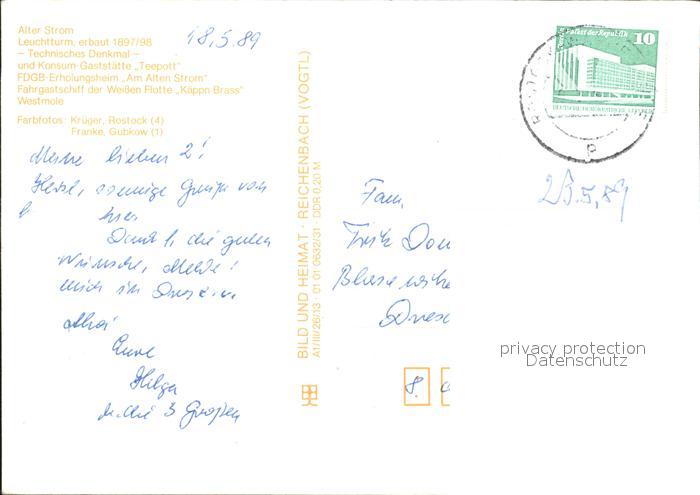 Alter Strom
Leuchtturm, erbaut 1897/98
– Technisches Denkmal –
und Konsum-Gaststätte „Teepott"
FDGB-Erholungsheim „Am Alten Strom"
Fahrgastschiff der Weißen Flotte „Käppn Brass"
Westmole
Farbfotos: Krüger, Rostock (4)
Franke, Gubkow (1)
18.5.89
Meine lieben 2!
Herzl. sonnige Grüße von
hier
Dank f. die guten
Wünsche, Melde
mich in
Ahoi
Eure
Helga
u. die 3 Großen
BILD UND HEIMAT · REICHENBACH (VOGTL)
A1/III/26/13 · 01 01 0632/31 · DDR 0,20 M
Palast der Republik 10
23.5.89
Fam.
Fritz
Dres
8.
privacy protection
Datenschutz